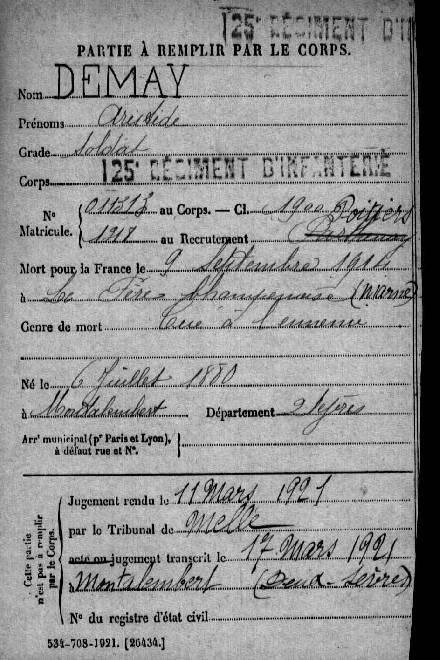 125e RÉGIMENT D'IN
PARTIE À REMPLIR PAR LE CORPS.
Nom DEMAY
Prénoms Aristide
Grade Soldat
Corps 125e RÉGIMENT D'INFANTERIE
No 011313 au Corps. — Cl. 1900 Poitiers
Matricule. 1218 au Recrutement Parthenay
Mort pour la France le 9 Septembre 1914
à La Fère Champenoise (Marne)
Genre de mort Tué à l'ennemi
Né le 6 Juillet 1880
à Montalembert Département 2 Sèvres
Arrt municipal (pr Paris et Lyon),
à défaut rue et No.
Cette partie
n'est pas à remplir
par le Corps.
Jugement rendu le 11 Mars 1921
par le Tribunal de Melle
acte ou jugement transcrit le 17 Mars 1921
à Montalembert (Deux-Sèvres)
No du registre d'état civil
534-708-1921. [26434.]